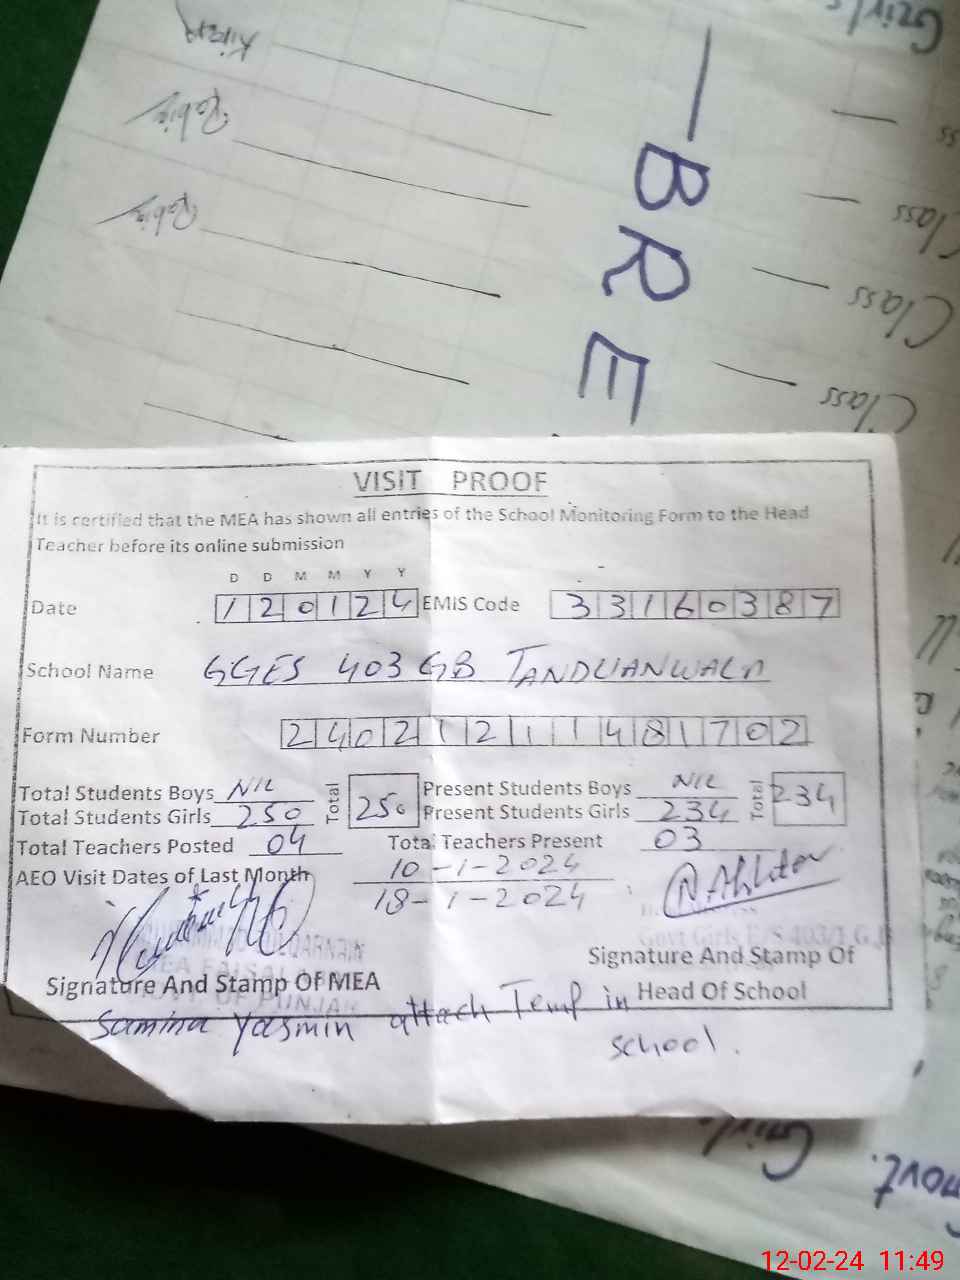 Girls
Kiran
Rabia
Rabia
Class
Class
Class
BRE
VISIT PROOF
It is certified that the MEA has shown all entries of the School Monitoring Form to the Head
Teacher before its online submission
D D M M Y Y
Date 120124 EMIS Code 33160387
School Name GGES 403 GB TANDLIANWALA
Form Number 24021211481702
Total Students Boys NIL Total 250 Present Students Boys NIL Total 234
Total Students Girls 250 Present Students Girls 234
Total Teachers Posted 04 Total Teachers Present 03
AEO Visit Dates of Last Month 10-1-2024
18-1-2024
N. Akhter
Govt Girls E/S 403/ G.B
Signature And Stamp OF MEA
GOVT. OF PUNJAB
Signature And Stamp Of
Head Of School
Samina Yasmin attach Temp in
school.
Govt. Girls
12-02-24 11:49